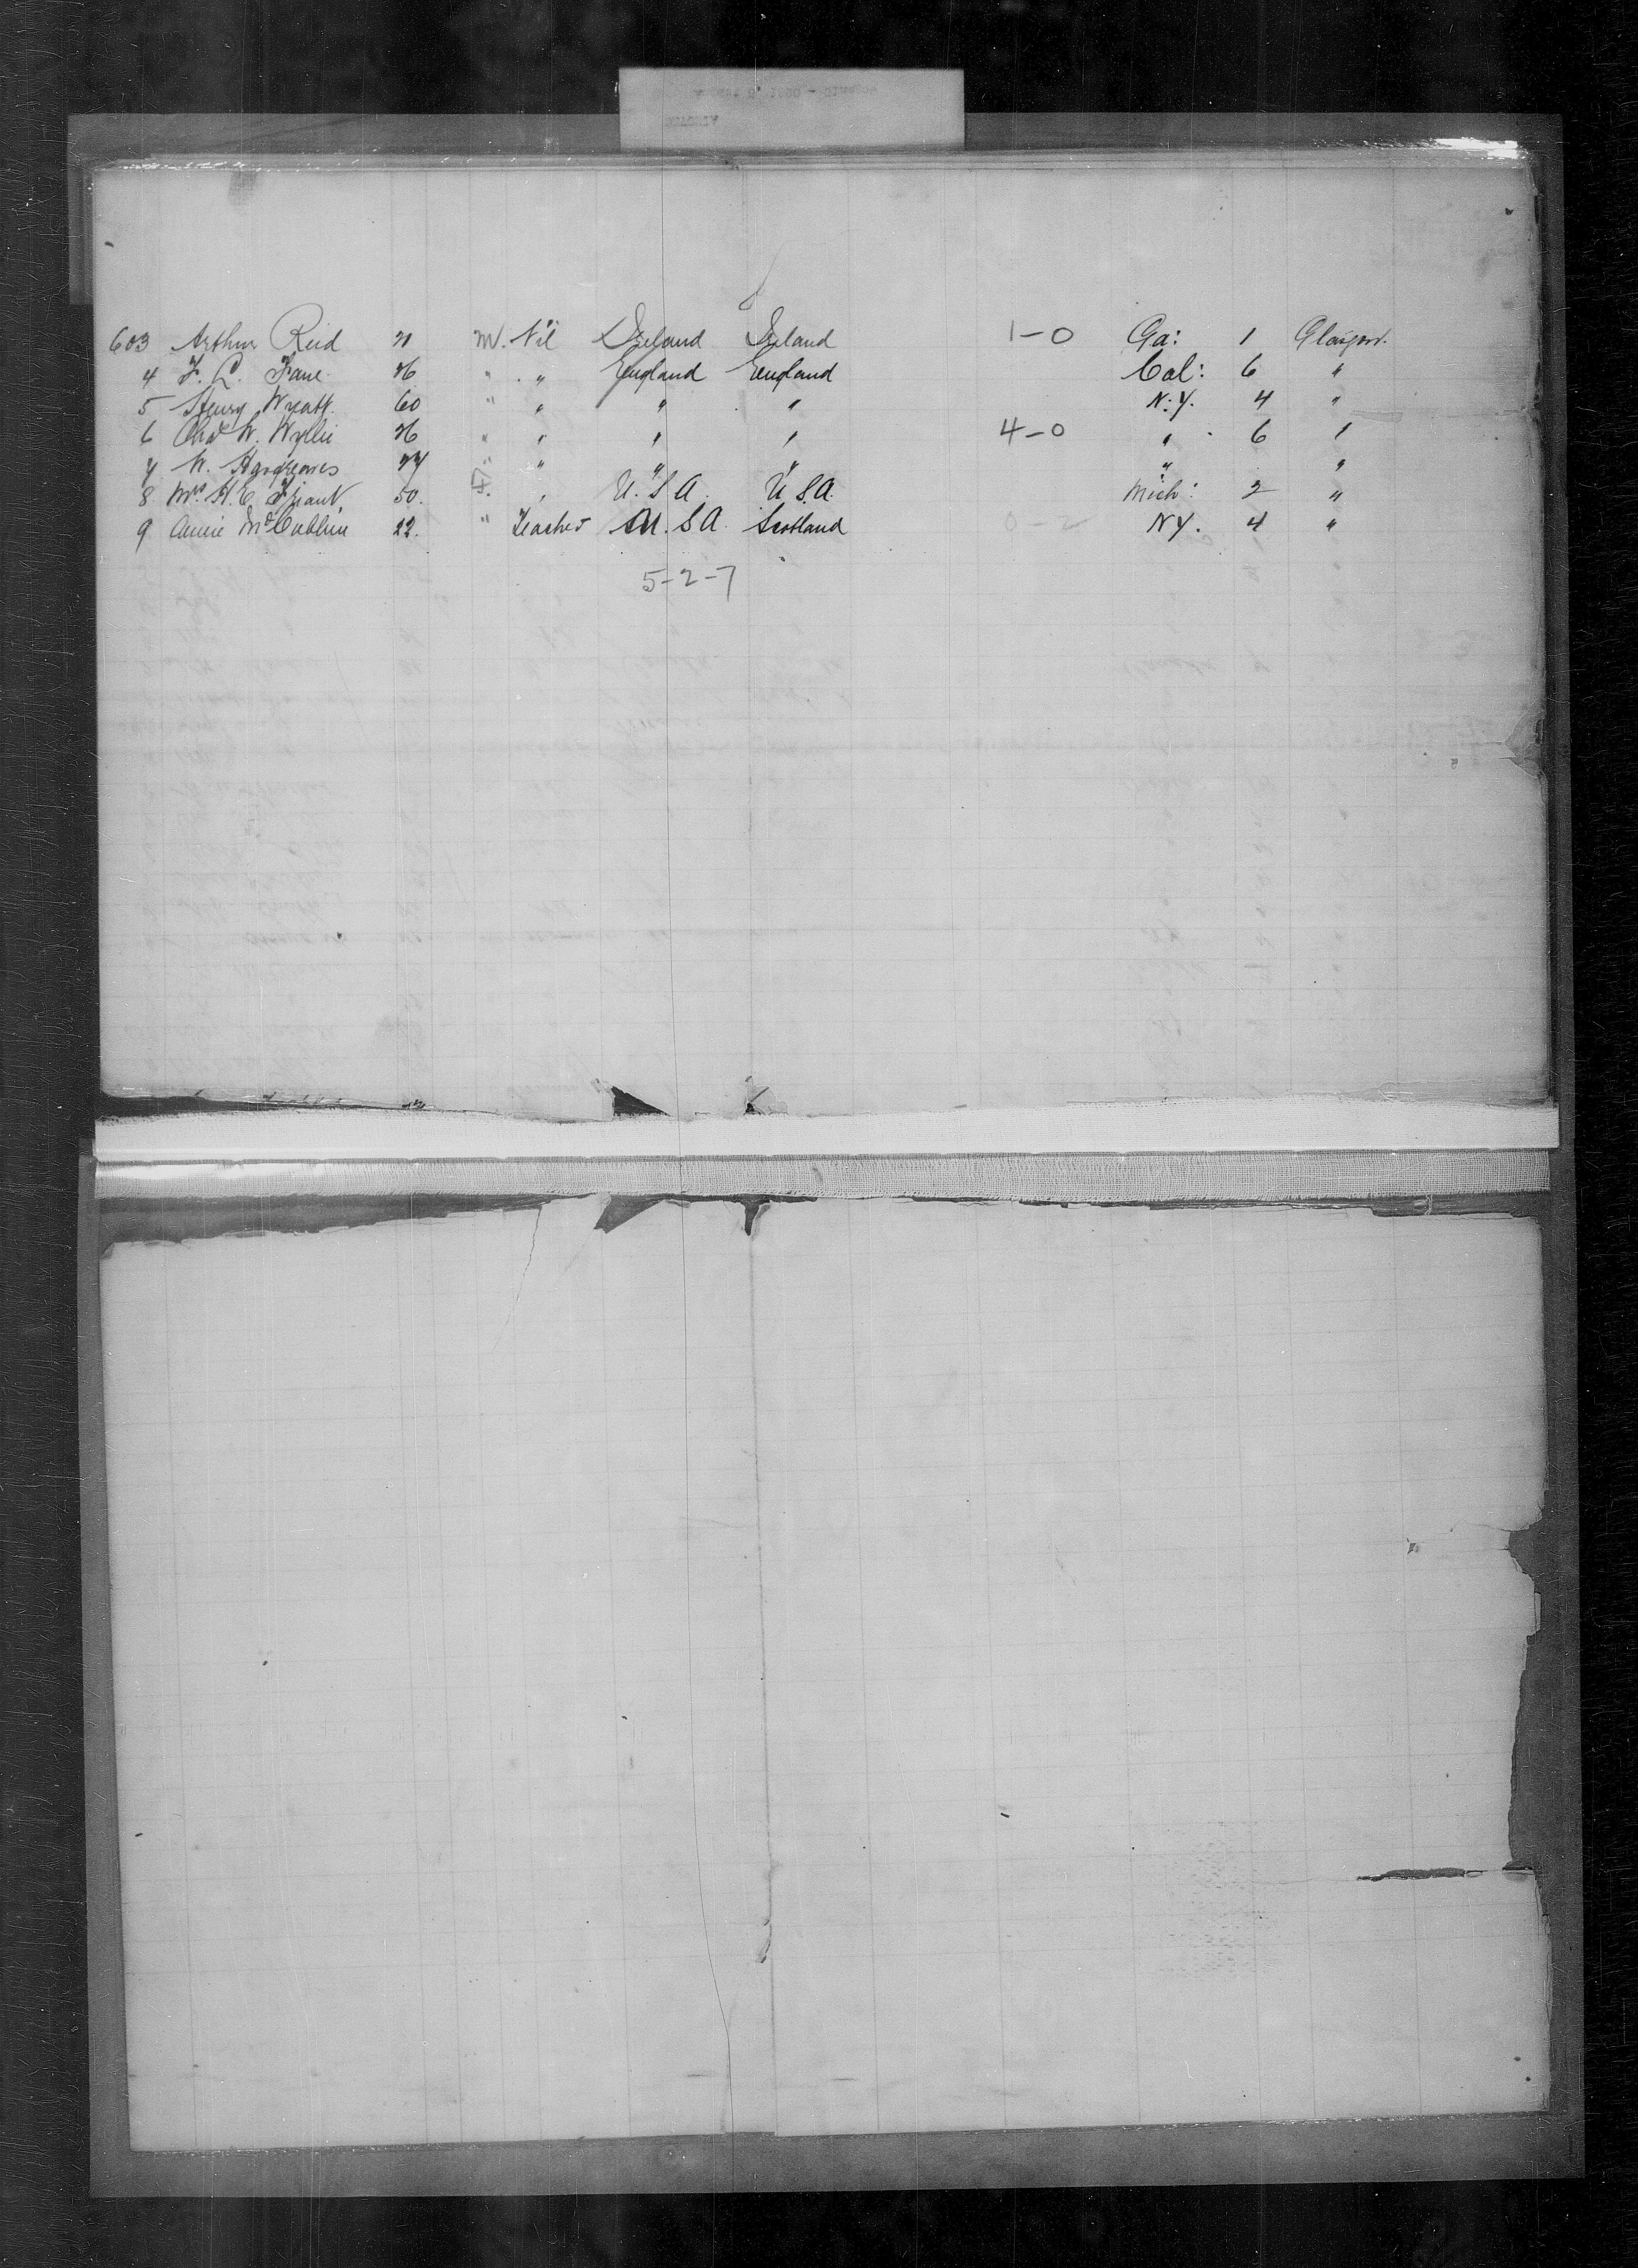 603 Arthur Reid 21 M. Nil Ireland Ireland 1-0 Ga: 1 Glasgow.
4 F. L. Fane. 26 " " England England Cal: 6 "
5 Henry Wyatt. 60 " " " " N.Y. 4 "
6 Chas W. Wyllie 26 " " " " 4-0 " 6 "
7 W. Hargreaves 27 " " " " " "
8 Mrs H. E. Grant 50. F. " U.S.A. U.S.A. Mich: 2 "
9 Annie McCubbin 22. " Teacher U.S.A. Scotland 0-2 N.Y. 4 "
5-2-7